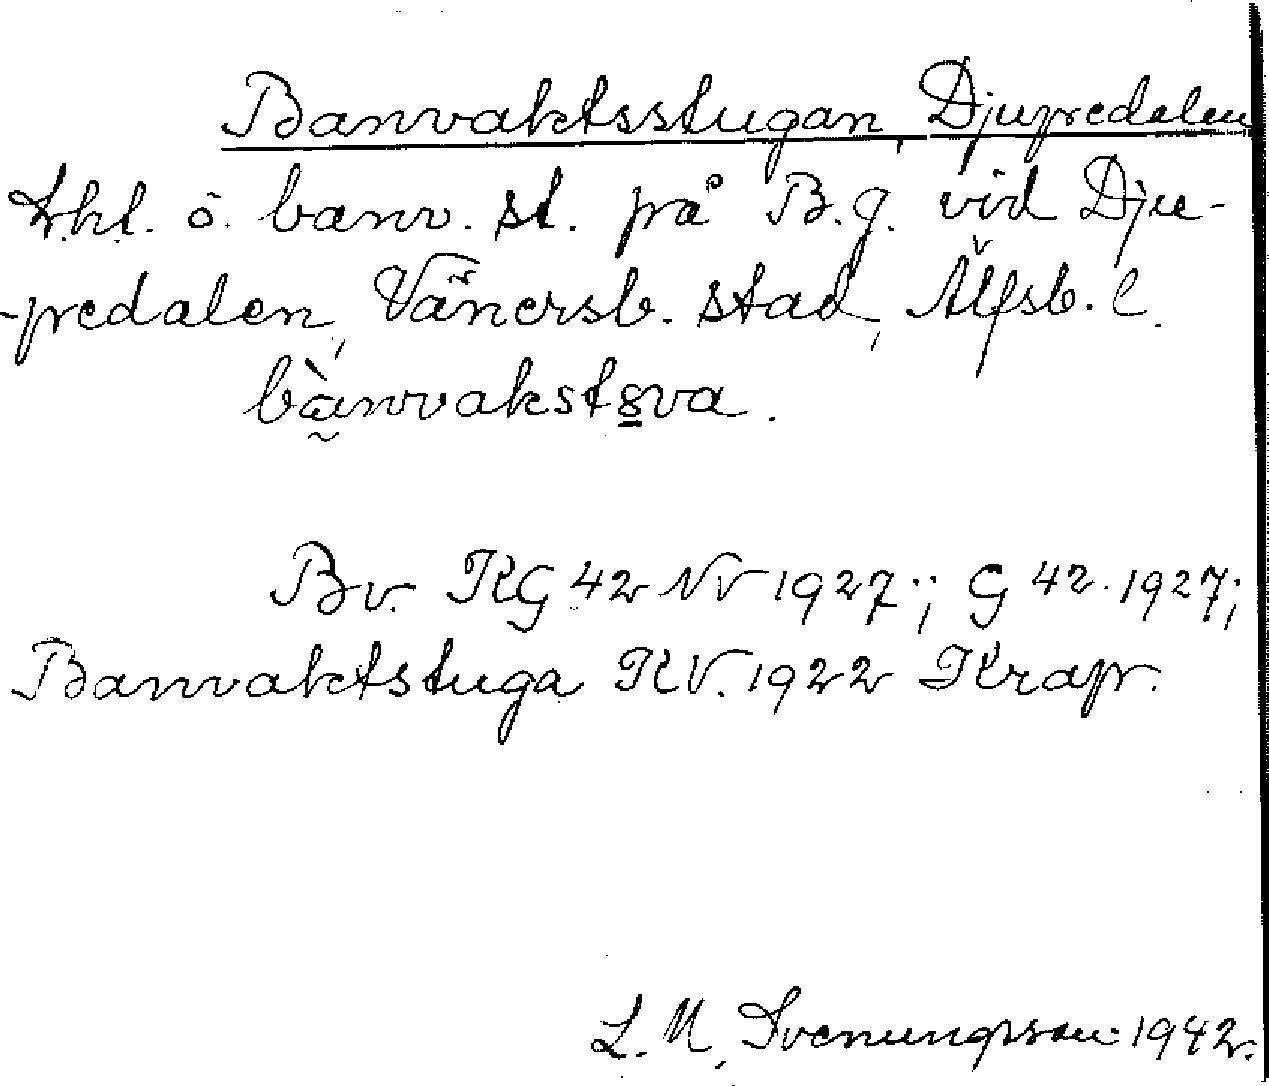 Banvaktsstugan, Djupedalen
Lht. o. banv. st. på B.g. vid Dju-
-pedalen, Vänersb. stad, Älfsb. l.
bànvvakstova.
Bv. KG 42 NV 1927; G 42. 1927;
Banvaktstuga KV. 1922 Krap.
L. M. Svenungsson 1942.